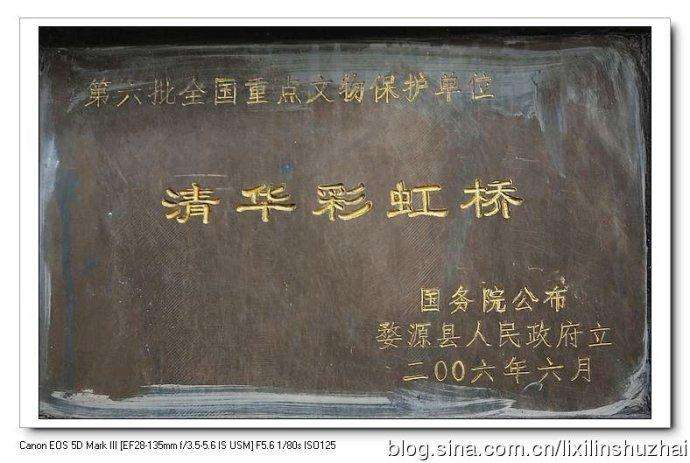 第六批全国重点文物保护单位
清华彩虹桥
国务院公布
婺源县人民政府立
二〇〇六年六月
Canon EOS 5D Mark III [EF28-135mm f/3.5-5.6 IS USM] F5.6 1/80s ISO125
blog.sina.com.cn/lixilinshuzhai